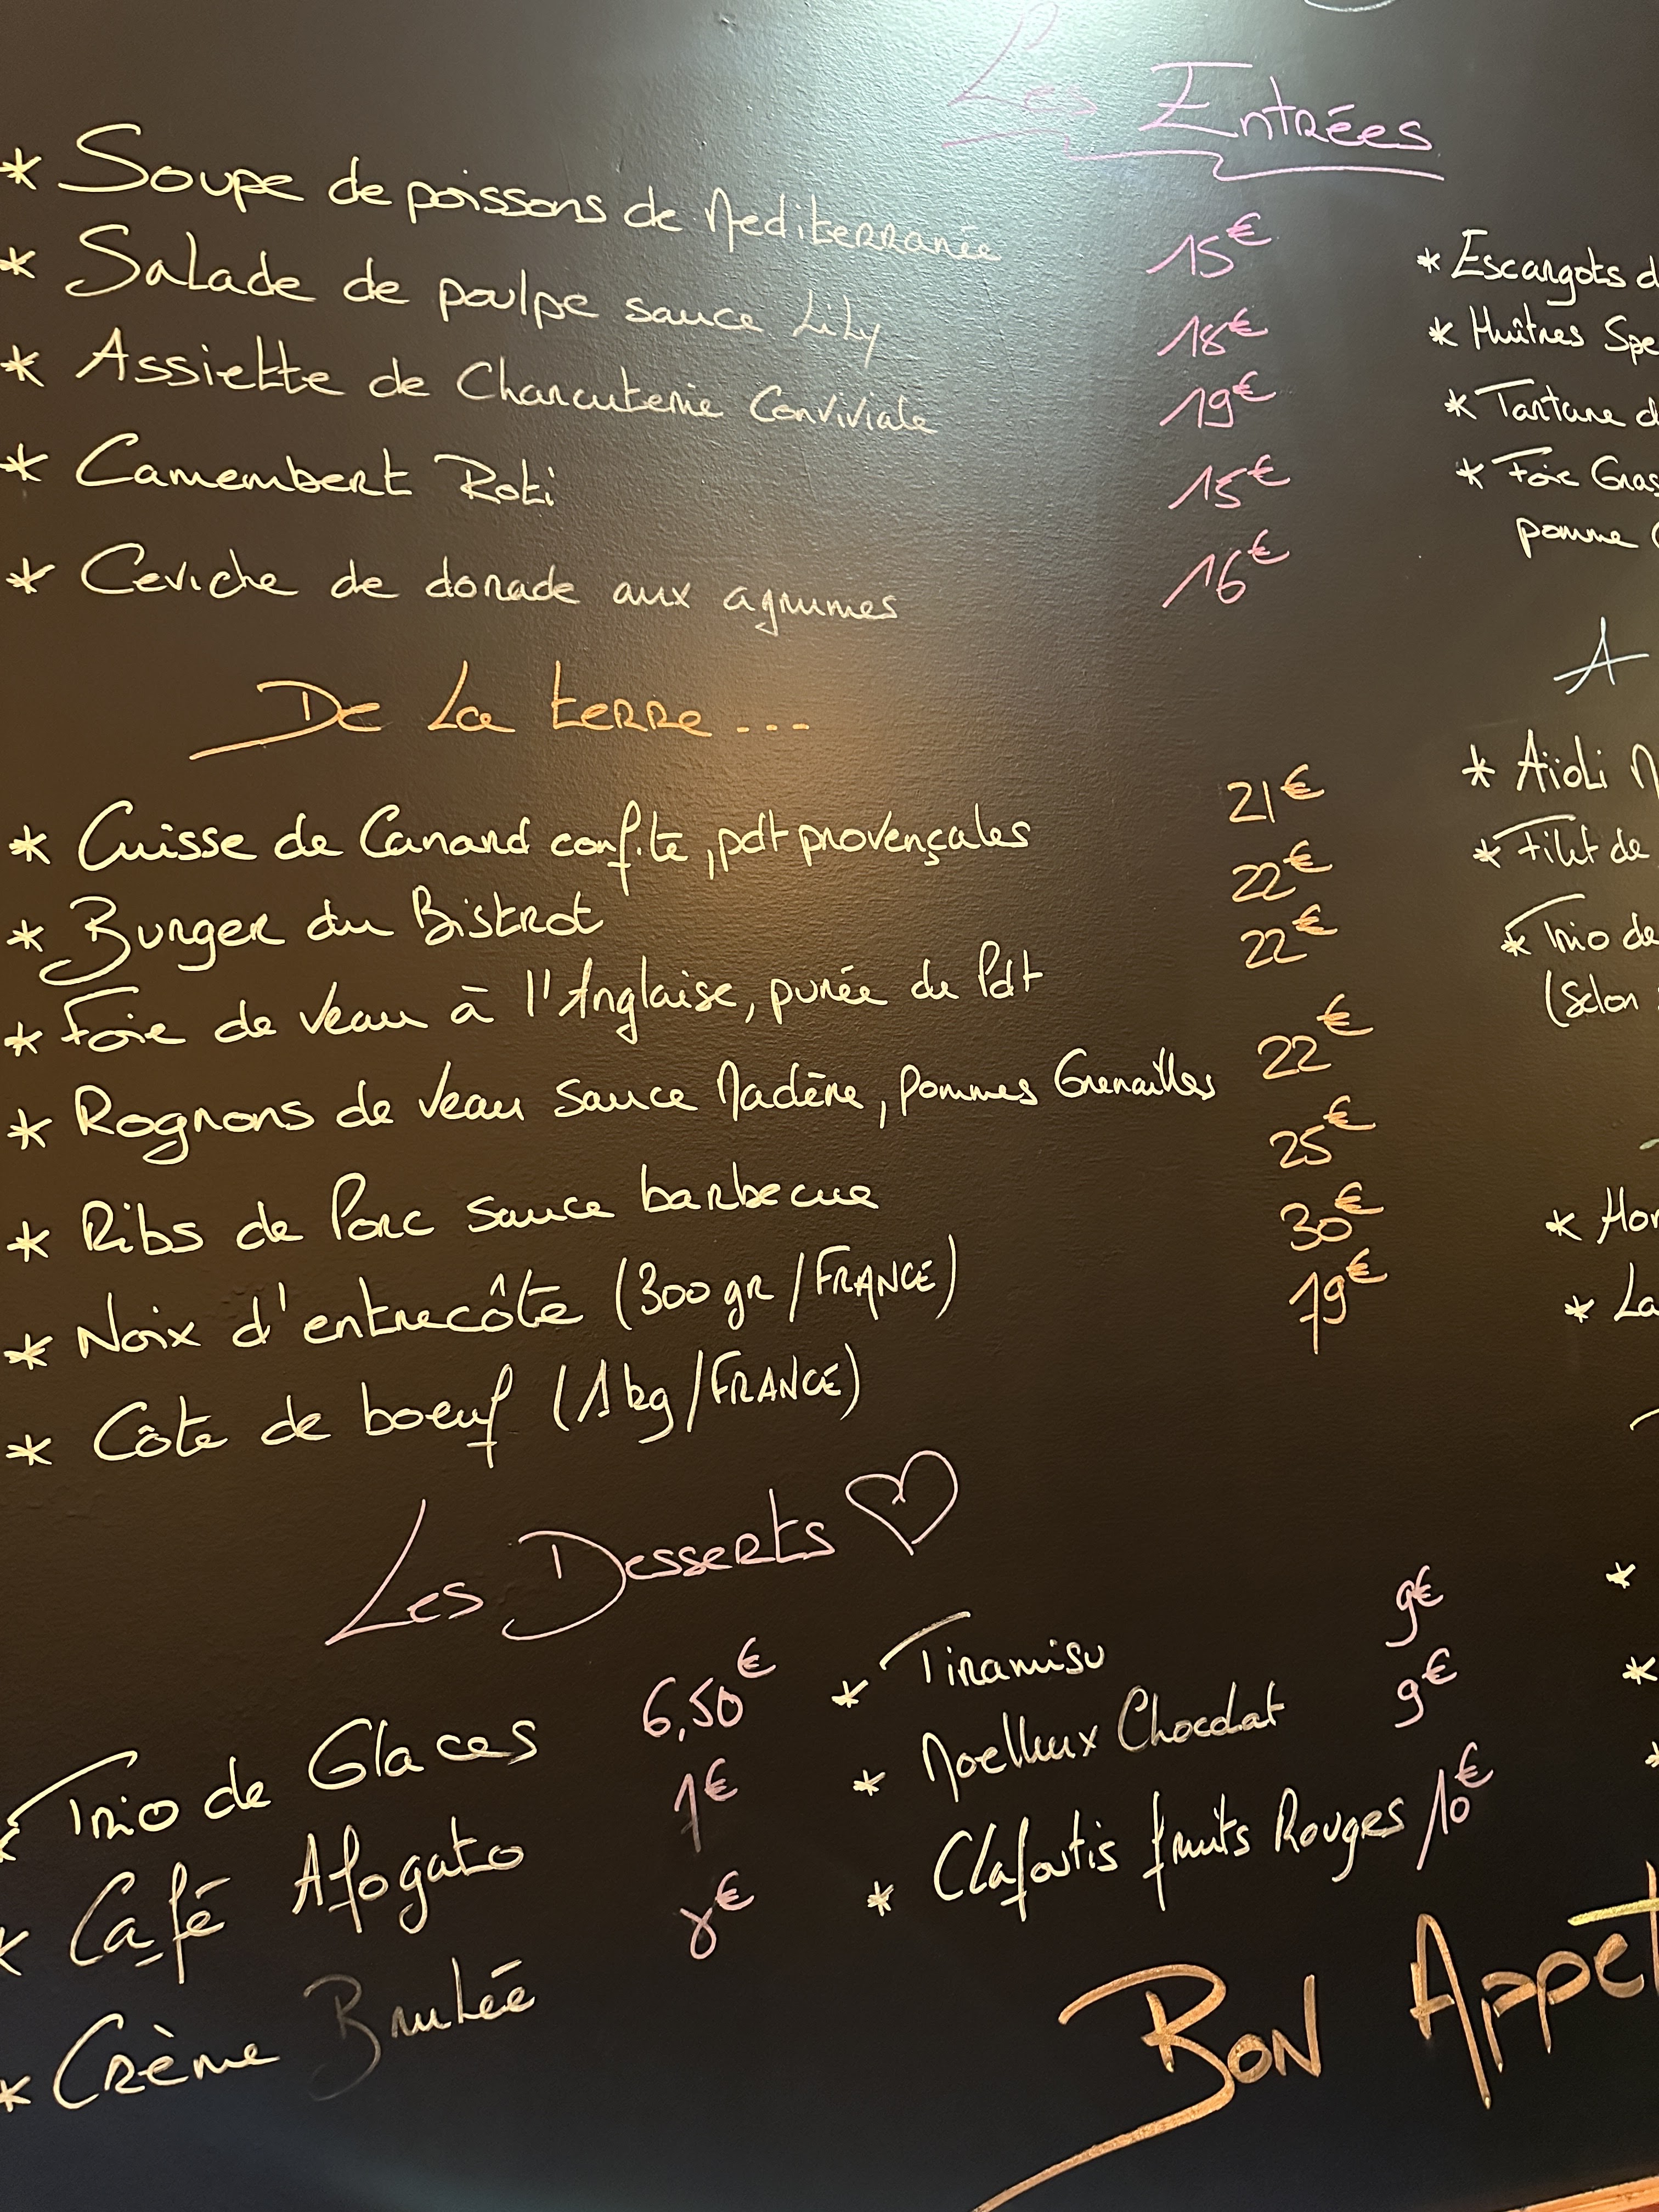 Les Entrées
* Soupe de poissons de Mediterranée 15€
* Salade de poulpe sauce Lily 18€
* Assiette de Charcuterie Conviviale 19€
* Camembert Roti 15€
* Ceviche de dorade aux agrumes 16€
De La terre...
* Cuisse de Canard confite, pdt provençales 21€
* Burger du Bistrot 22€
* Foie de Veau à l'Anglaise, purée de Pdt 22€
* Rognons de Veau sauce Madère, pommes Grenailles 22€
* Ribs de Porc sauce barbecue 25€
* Noix d'entrecôte (300gr/FRANCE) 30€
* Côte de boeuf (1kg/FRANCE) 79€
Les Desserts ♡
* Trio de Glaces 6,50€
* Café Afogato 7€
* Crème Brulée 8€
* Tiramisu 9€
* Moelleux Chocolat 9€
* Clafoutis fruits Rouges 10€
* Escargots d
* Huîtres Spe
* Tartare d
* Foie Gras
pomme
A
* Aïoli M
* Filet de
* Trio de
(Selon
* Hom
* La
Bon Appet